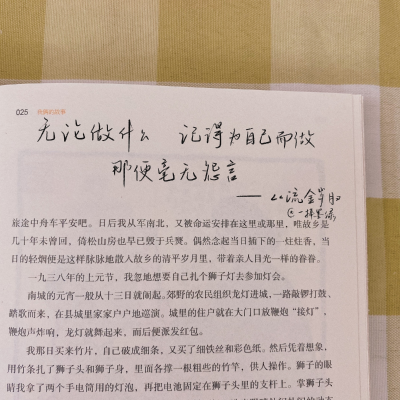 025
无论做什么 记得为自己而做
那便毫无怨言
——以流金岁月
旅途中舟车平安吧。日后我从军南北，又被命运安排在这里或那里，唯故乡是
几十年未曾回，倚松山房也早已毁于兵燹。偶然念起当日插下的一炷炷香，当
日的轻烟便是这样脉脉地散入故乡的清平岁月里，带着亲人目光一样的眷眷。
一九三八年的上元节，我忽地想要自己扎个狮子灯去参加灯会。
南城的元宵一般从十三日就闹起。郊野的农民组织龙灯进城，一路敲锣打鼓、
踏歌而来，在县城里家家户户地巡演。城里的住户就在大门口放鞭炮“接灯”，
鞭炮声炸响，龙灯就舞起来，而后便派发红包。
我那日买来竹片，自己破成细条，又买了细铁丝和彩色纸。然后凭着想象，
用竹条扎了狮子头和狮子身，里面各撑一根粗些的竹竿，供人操作。狮子的眼
睛我拿了两个手电筒用的灯泡，再把电池固定在狮子头里的支杆上。掌狮子头